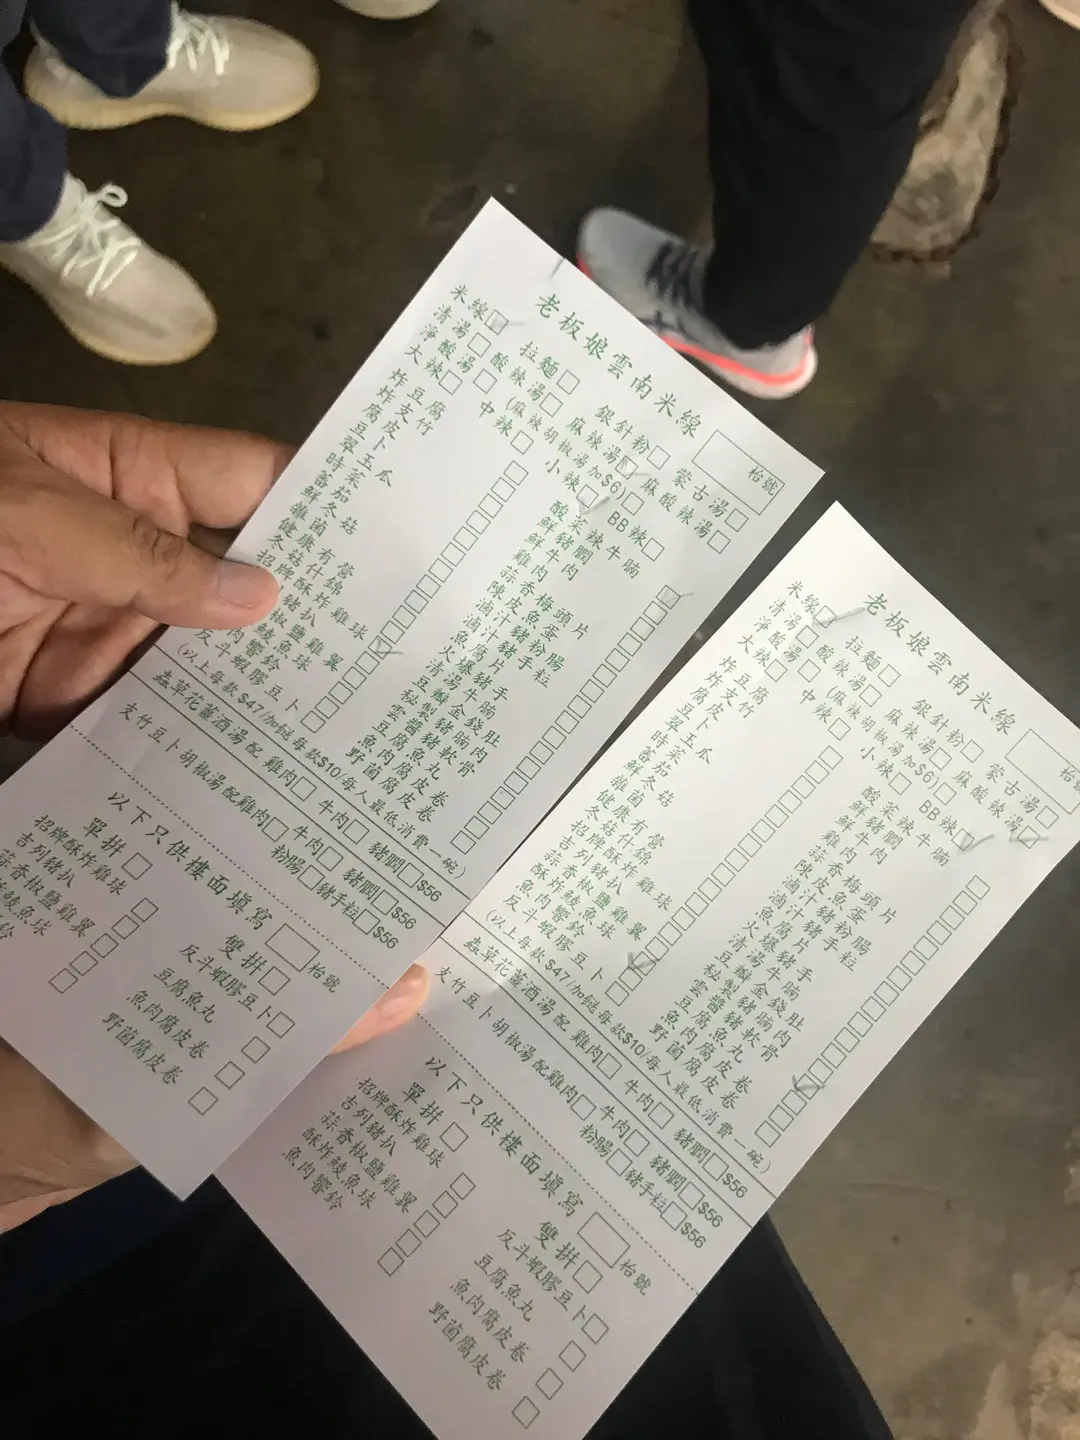 老板娘雲南米線
枱號
米線□ 拉麵□ 銀針粉□ 蒙古湯□
清湯□ 酸辣湯□ 麻辣湯□ 麻酸辣湯□
淨酸湯□ (麻辣胡椒湯加$6)□
大辣□ 中辣□ 小辣□ BB辣□
炸豆腐
炸支竹
腐皮
豆卜
翠玉瓜
時菜
蕃茄
鮮冬菇
雜菌
健康有營
冬菇什錦
招牌酥炸雞球
豬扒
椒鹽雞翼
鯪魚球
肉響鈴
反斗蝦膠豆卜
酸菜辣牛腩
鮮豬膶
鮮牛肉
雞肉
蒜香梅頭片
陳皮魚蛋
滷汁豬粉腸
滷汁豬手粒
魚腐片
火爆豬手
清湯牛腩
豆瓣金錢肚
秘製豬腩肉
雲醬豬軟骨
豆腐魚丸
魚肉腐皮卷
野菌腐皮卷
(以上每款 $47/加餸每款$10/每人最低消費一碗)
蟲草花薑酒湯配 雞肉□ 牛肉□ 豬膶□ $56
支竹豆卜胡椒湯配雞肉□ 牛肉□ 豬膶□ $56
粉腸□ 豬手粒□ $56
以下只供樓面填寫
枱號
單拼□ 雙拼□
招牌酥炸雞球
吉列豬扒
蒜香椒鹽雞翼
炸鯪魚球
鈴
反斗蝦膠豆卜
豆腐魚丸
魚肉腐皮卷
野菌腐皮卷
老板娘雲南米線
枱號
米線□ 拉麵□ 銀針粉□ 蒙古湯□
清湯□ 酸辣湯□ 麻辣湯□ 麻酸辣湯□
淨酸湯□ (麻辣胡椒湯加$6)□
大辣□ 中辣□ 小辣□ BB辣□
炸豆腐
炸支竹
腐皮
豆卜
翠玉瓜
時菜
蕃茄
鮮冬菇
雜菌
健康有營
冬菇什錦
招牌酥炸雞球
吉列豬扒
蒜香椒鹽雞翼
酥炸鯪魚球
魚肉響鈴
反斗蝦膠豆卜
酸菜辣牛腩
鮮豬膶
鮮牛肉
雞肉
蒜香梅頭片
陳皮魚蛋
滷汁豬粉腸
滷汁豬手粒
魚腐片
火爆豬手
清湯牛腩
豆瓣金錢肚
秘製豬腩肉
雲醬豬軟骨
豆腐魚丸
魚肉腐皮卷
野菌腐皮卷
(以上每款 $47/加餸每款$10/每人最低消費一碗)
蟲草花薑酒湯配 雞肉□ 牛肉□ 豬膶□ $56
支竹豆卜胡椒湯配雞肉□ 牛肉□ 豬膶□ $56
粉腸□ 豬手粒□ $56
以下只供樓面填寫
枱號
單拼□ 雙拼□
招牌酥炸雞球
吉列豬扒
蒜香椒鹽雞翼
酥炸鯪魚球
魚肉響鈴
反斗蝦膠豆卜
豆腐魚丸
魚肉腐皮卷
野菌腐皮卷